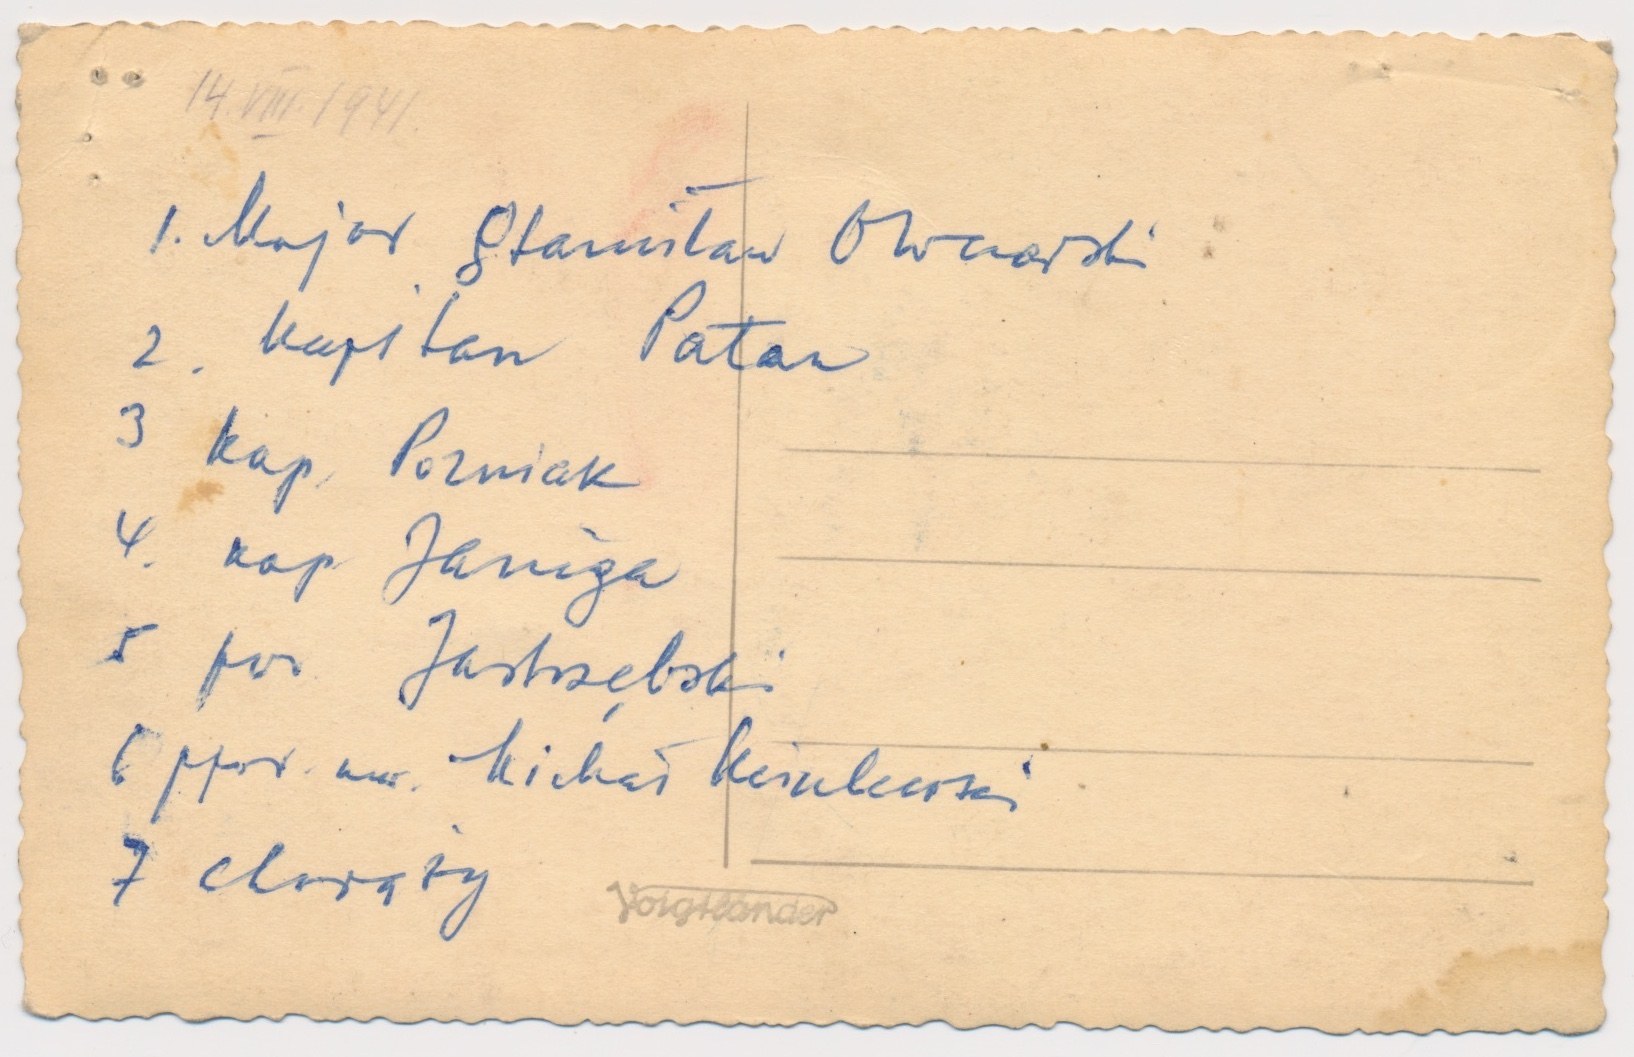 14.VIII.1941.
1. Major Stanisław
2. Kapitan Patan
3 kap. Pozniak
4. kap. Janiga
5 por. Jastrzębski
6 ppor. Michał
7 chorąży
Voigtländer